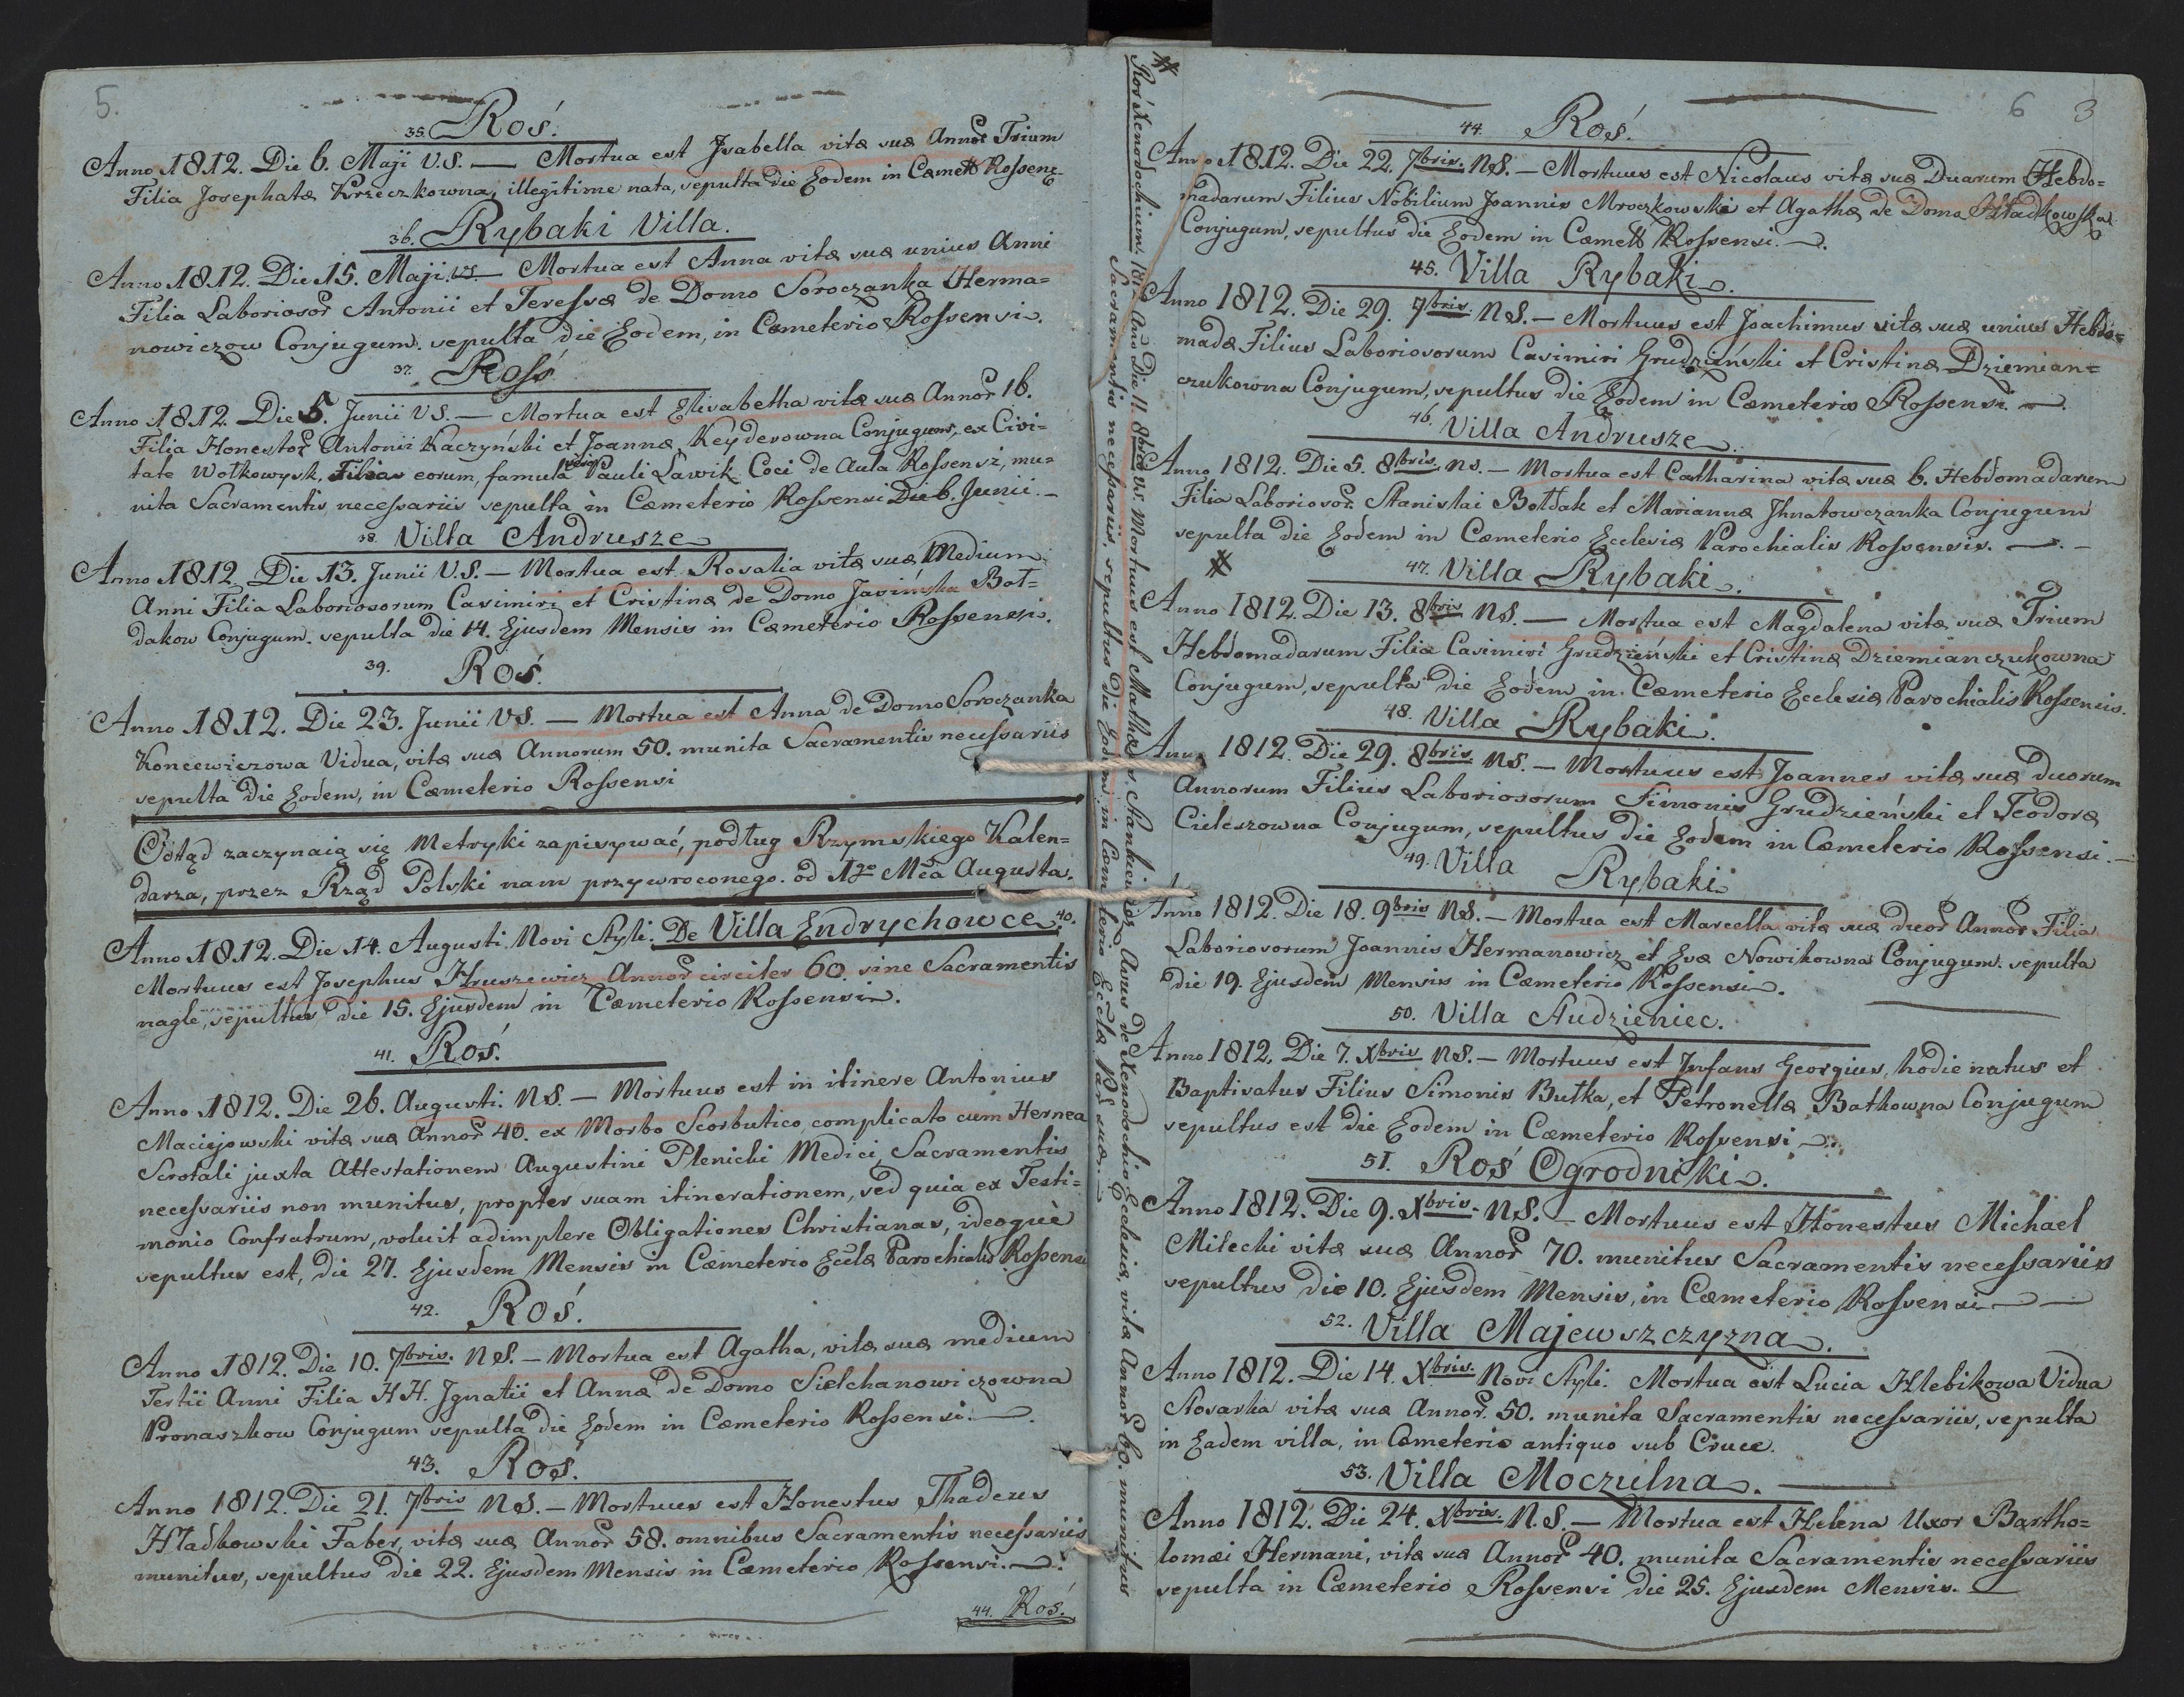 5.
35. Roś.
Anno 1812. Die 6. Maji V.S. — Mortua est Jsabella vitæ suæ Annor Trium
Filia Josephatæ Krzeczkowna, illegitime nata, sepulta die Eodem in Cæmett Rossens.
36. Rybaki Villa.
Anno 1812. Die 15. Maji. V.S. — Mortua est Anna vitæ suæ unius Anni
Filia Laboriosor Antonii etTeressæ de Domo Soroczanka Herma=
nowiczow Conjugum. sepulta die Eodem, in Cæmeterio Rossensi.
37. Roś.
Anno 1812. Die 5. Junii V.S. — Mortua est Elisabetha vitæ suæ Annor 16.
Filia Honestor Antonii Kaczyński et Joannæ Keyderowna Conjugum, ex Civi=
tate Wołkowysk, Filias eorum, famula Pauli Ławik Coci de Aula Rossensi, mu=
nita Sacramentis necessariis sepulta in Cæmeterio Rossensi Die 6. Junii. —
38. Villa Andrusze
Anno 1812. Die 13. Junii V.S. — Mortua est Rosalia vitæ suæ Medium
Anni Filia Laboriosorum Casimiri et Cristinæ de Domo Jasińska Boł=
dakow Conjugum. sepulta die 14. Ejusdem Mensis in Cæmeterio Rossensi.
39. Roś.
Anno 1812. Die 23. Junii V.S. — Mortua est Anna de Domo Soroczanka
Koncewiczowa Vidua, vitæ suæ Annorum 50. munita Sacramentis necessariis
sepulta die Eodem, in Cæmeterio Rossensi
Odtąd zaczynaią się Metryki zapisywać, podług Rzymskiego Kalen=
darza, przez Rząd Polski nam przywroconego. od 1go Mca Augusta.
Anno 1812. Die 14. Augusti. Novi Styli. De Villa Endrychowce. 40.
Mortuus est Josephus Hruszewicz Annor circiter 60. sine Sacramentis
nagle, sepultus die 15. Ejusdem in Cæmeterio Rossensi.
41. Roś.
Anno 1812. Die 26. Augusti. N.S. — Mortuus est in itinere Antonius
Maciejowski vitæ suæ Annor 40. ex Morbo Scorbutico, complicato cum Hernea
Scrotali juxta Attestationem Augustini Plenicki Medici, Sacramentis
necessariis non munitus, propter suam itinerationem, sed quia ex Testi=
monio Confratrum, voluit adimplere Obligationes Christianas, ideoquè
sepultus est, die 27. Ejusdem Mensis in Cæmeterio Ecclæ Parochialis Rossensi
42. Roś.
Anno 1812. Die 10. 7bris. N.S. — Mortua est Agatha, vitæ suæ medium
Tertii Anni Filia HH. Jgnatii et Annæ de Domo Sielchanowiczowna
Pronaszkow Conjugum sepulta die Eodem in Cæmeterio Rossensi. —.
43. Roś.
Anno 1812. Die 21. 7bris N.S. — Mortuus est Honestus Thadeus
Hładkowski Faber, vitæ suæ Annor 58. omnibus Sacramentis necessariis
munitus, sepultus die 22. Ejusdem Mensis in Cæmeterio Rossensi. —.
44. Roś.
Roś Xenodochium. 1812 Anno Die 11. 8bris n.s. Mortuus est Mathæus Stankiewicz Avus de Xenodochio Ecclesiæ, vitæ Annor 60. munitus
Sacramentis necessariis, sepultus die Eodem, in Cæmeterio Ecclæ Par suæ. —
6 3
44. Roś.
Anno 1812. Die 22. 7bris. N.S. — Mortuus est Nicolaus vitæ suæ Duarum Hebdo=
madarum Filius Nobilium Joannis Mroczkowski et Agathæ de Domo Hładkowska
Conjugum, sepultus die Eodem in Cæmett Rossensi. —.
45. Villa Rybaki.
Anno 1812. Die 29. 7bris. N.S. — Mortuus est Joachimus vitæ suæ unius Hebdo=
madæ Filius Laboriosorum Casimiri Grudzieński et Cristinæ Dziemian=
czukowna Conjugum, sepultus die Eodem in Cæmeterio Rossensi. —.
46. Villa Andrusze.
Anno 1812. Die 5. 8bris. n.s. — Mortua est Catharina vitæ suæ 6. Hebdomadarum
Filia Laboriosor Stanislai Bołdak et Mariannæ Jhnatowczanka Conjugum
sepulta die Eodem in Cæmeterio Ecclesiæ Parochialis Rossensis. —. —
47. Villa Rybaki.
Anno 1812. Die 13. 8bris N.S. — Mortua est Magdalena vitæ suæ Trium
Hebdomadarum Filia Casimiri Grudzieński et Cristinæ Dziemianczukowna
Conjugum, sepulta die Eodem in Cæmeterio Ecclesiæ Parochialis Rossensis.
48. Villa Rybaki.
Anno 1812. Die 29. 8bris. N.S. — Mortuus est Joannes vitæ suæ duorum
Annorum Filius Laboriosorum Simonis Grudzieński et Teodoræ
Cieleszowna Conjugum, sepultus die Eodem in Cæmeterio Rossensi. —
49. Villa Rybaki
Anno 1812. Die 18. 9bris N.S. — Mortua est Marcella vitæ suæ duor Annor Filia
Laboriosorum Joannis Hermanowicz et Evæ Nowikowna Conjugum. sepulta
die 19. Ejusdem Mensis in Cæmeterio Rossensi.
50. Villa Studzieniec.
Anno 1812. Die 7. Xbris N.S. — Mortuus est Jnfans Georgius, hodie natus et
Baptisatus Filius Simonis Butka, et Petronellæ Batkowna Conjugum
sepultus est die Eodem in Cæmeterio Rossensi —.
51. Roś Ogrodniki.
Anno 1812. Die 9. Xbris. N.S. — Mortuus est Honestus Michael
Miłecki vitæ suæ Annor 70. munitus Sacramentis necessariis
sepultus die 10. Ejusdem Mensis, in Cæmeterio Rossensi —
52. Villa Majewszczyzna.
Anno 1812. Die 14. Xbris. Novi Styli. Mortua est Lucia Hlebikowa Vidua
Stosarka vitæ suæ Annor. 50. munita Sacramentis necessariis, sepulta
in Eadem villa, in Cæmeterio antiquo sub Cruce.
53. Villa Moczulna.
Anno 1812. Die 24. Xbris. N.S. — Mortua est Helena Uxor Bartho=
lomæi Hermani, vitæ suæ Annor 40. munita Sacramentis necessariis
sepulta in Cæmeterio Rossensi die 25. Ejusdem Mensis. —